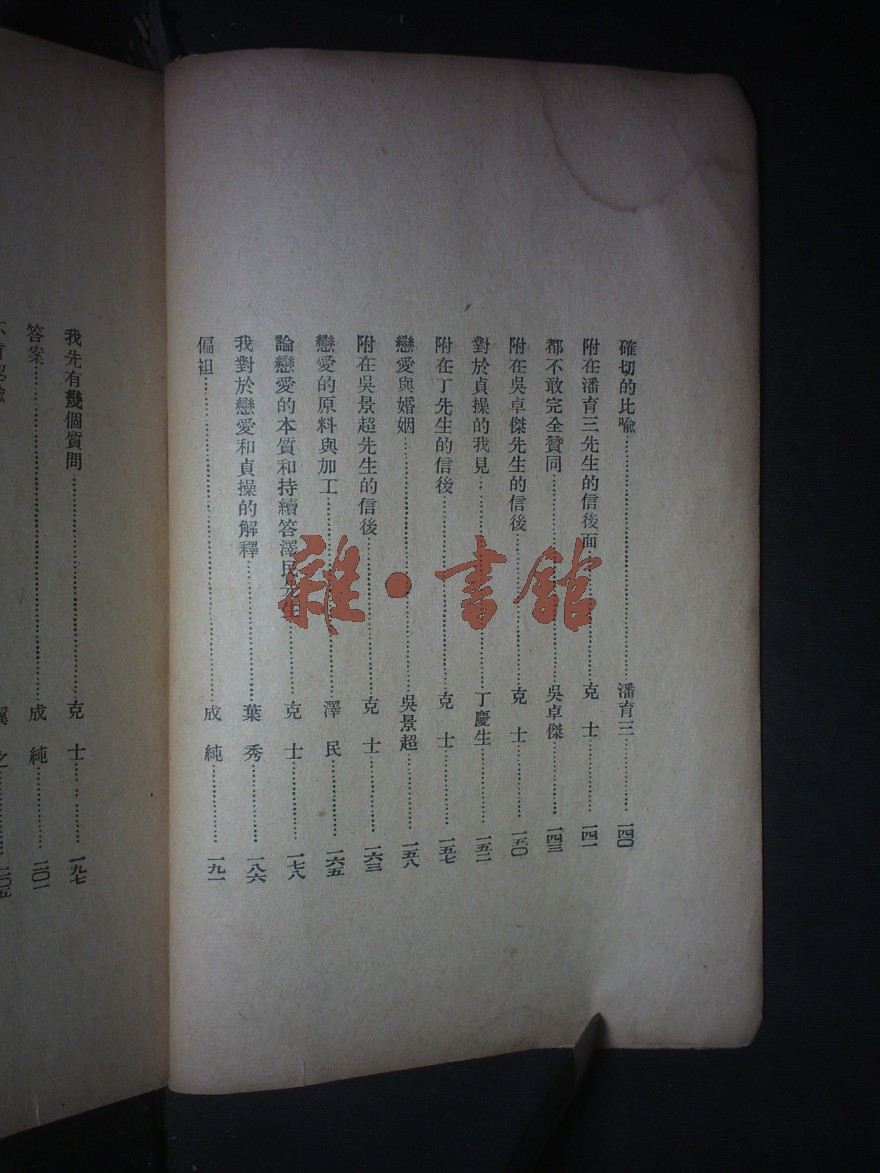 確切的比喩……潘育三……一四〇
附在潘育三先生的信後面……克士……一四一
都不敢完全贊同……吳卓傑……一四三
附在吳卓傑先生的信後……克士……一五〇
對於貞操的我見……丁慶生……一五二
附在丁先生的信後……克士……一五七
戀愛與婚姻……吳景超……一五八
附在吳景超先生的信後……克士……一六三
戀愛的原料與加工……澤民……一六五
論戀愛的本質和持續答澤民先生……克士……一七八
我對於戀愛和貞操的解釋……葉秀……一八六
偏袒……成純……一九一
我先有幾個質問……克士……一九七
答案……成純……二〇一
之……二〇五
雜·書館